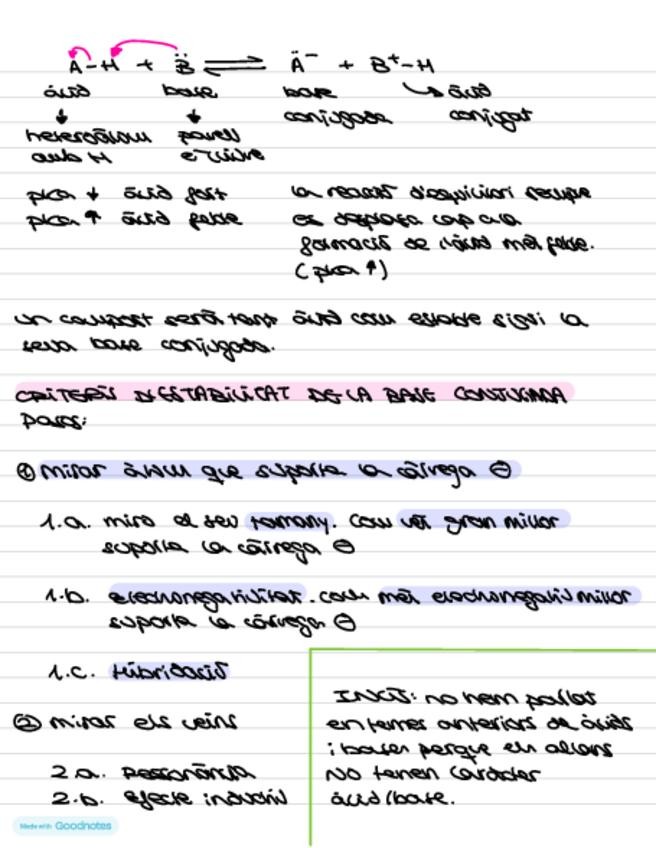 A-H + B̈ ⇌ Ä⁻ + B⁺-H
àcid base base àcid
conjugada conjugat
heteroàtom parell
amb H e⁻ lliure
pka ↓ àcid fort
pka ↑ àcid feble
la reacció d'equilibri sempre
es desplaça cap a la
formació de l'àcid més feble.
(pka ↑)
un compost serà tant àcid com estable sigui la
seva base conjugada.
CRITERIS D'ESTABILITAT DE LA BASE CONJUGADA
Passos:
① mirar àtom que suporta la càrrega ⊖
1.a. miro el seu tamany. Com més gran millor
suporta la càrrega ⊖
1.b. electronegativitat. com més electronegatiu millor
suporta la càrrega ⊖
1.c. Hibridació
② mirar els veïns
2.a. Ressonància
2.b. efecte inductiu
INCÍS: no hem parlat
en temes anteriors de àcids
i bases perque els alcans
NO tenen caràcter
àcid/base.
Made with Goodnotes